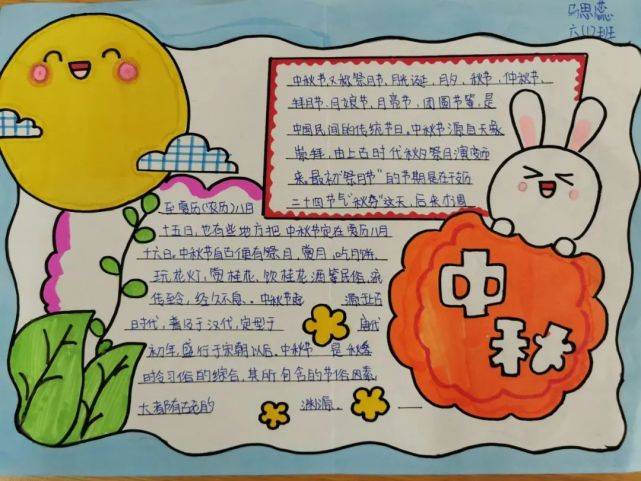 马思蕊
六(1)班
中秋节又称祭月节、月光诞、月夕、秋节、仲秋节、
拜月节、月娘节、月亮节、团圆节等，是
中国民间的传统节日，中秋节源自天象
崇拜，由上古时代秋夕祭月演变而
来。最初“祭月节”的节期是在干支
二十四节气“秋分”这天，后来才调
至夏历(农历)八月
十五日，也有些地方把中秋节定在夏历八月
十六日，中秋节自古便有祭月、赏月、吃月饼、
玩花灯、赏桂花、饮桂花酒等民俗，流
传至今，经久不息。中秋节起 源于上古
时代，普及于汉代，定型于 唐代
初年，盛行于宋朝以后。中秋节 是秋季
时令习俗的综合，其所包含的节俗因素，
大都有古老的 渊源。
中秋